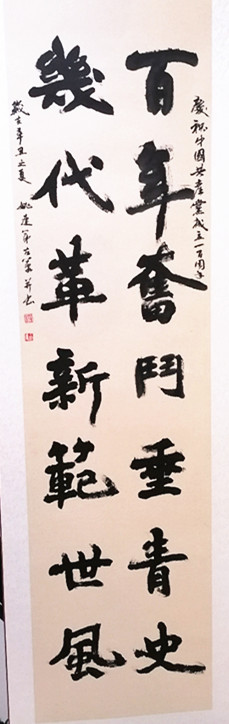 慶祝中國共產黨成立一百周年
百年奮鬥垂青史
幾代革新範世風
歲在辛丑之夏